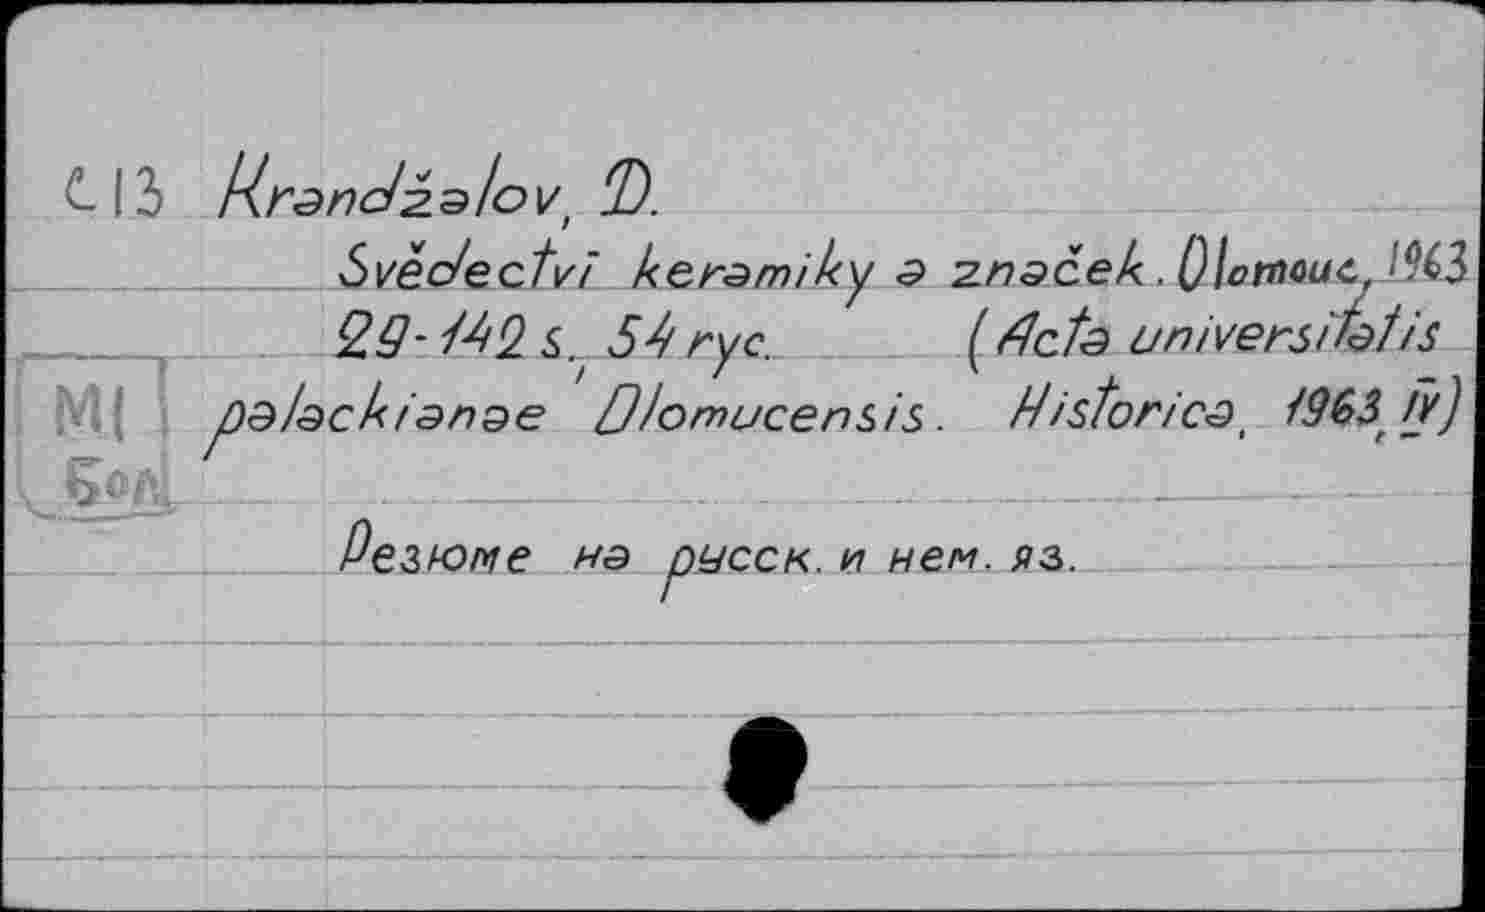 C13 Krandžalov, D.
Svědectví keramiky a značek. Olomouc, 1963
29-142 s., 54 ryc. (Acta universitatis
M| palackianae Olomucensis. Historica, 1963, IV)
Бол
Резюме на русск. и нем. яз.